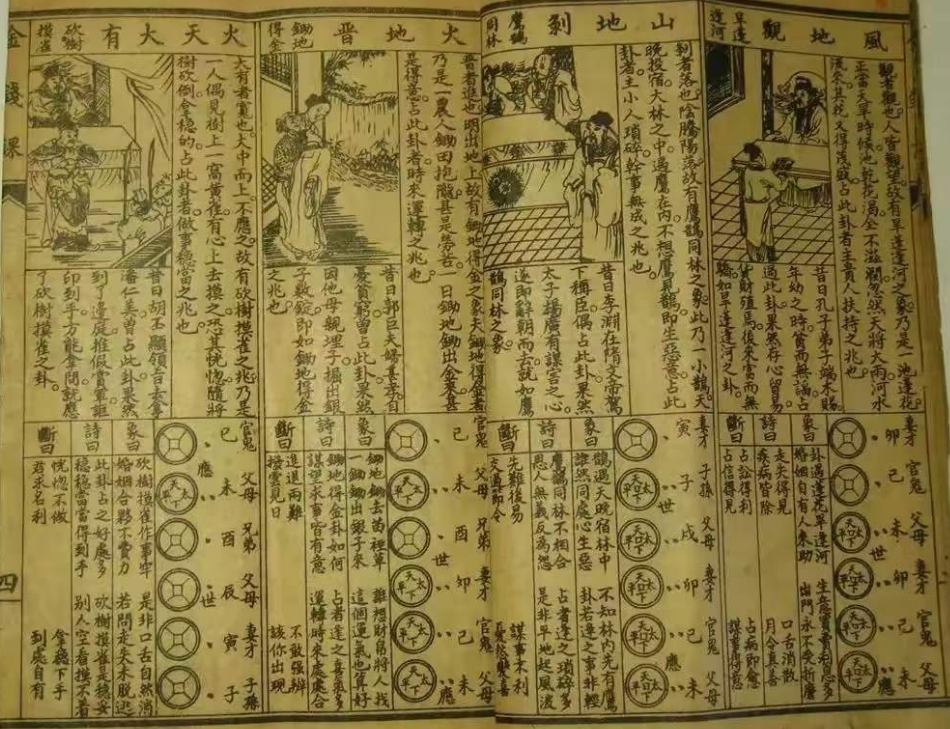 風地觀
旱蓮
逢河
觀者觀也人皆觀望故有旱蓮逢河之象乃是一池蓮花
正當天旱時候池乾花渴全不滋潤忽然天將大雨河水
流來其枝又得茂盛占此卦者主貴人扶持之兆也
昔日孔子弟子端木賜
年幼之時貧而無諂占
過此卦果然存心貿易
貨財殖焉後來富而無
驕如旱蓮逢河之卦
妻才
卯
官鬼
巳
父母
未
世
妻才
卯
官鬼
巳
父母
未
應
象曰
卦遇蓮花旱逢河
婚姻自有人來助
出門永不受折磨
詩曰
疾病皆除
走失得見
口舌消散
月令真善
斷曰
占訟得勝
占信得見
占病即愈
謀事得意
山地剝
鷹鵲
同林
剝者落也陰勝陽落故有鷹鵲同林之象此乃一小鵲天
晚投宿大林之中過鷹在內不想鷹見鵲即生惡意占此
卦者主小人瑣碎幹事無成之兆也
昔日李渊在隋文帝駕
下稱臣偶占此卦果然
太子楊廣有謀害之心
遂即辭朝而去就如鷹
鵲同林之象
妻才
寅
子孫
子
世
父母
戌
妻才
卯
官鬼
巳
應
父母
未
象曰
鵲遇天晚宿林中
不知林內先有鷹
雖然同處心生惡
卦若逢之事非輕
詩曰
鷹鵲同林不相合
占者逢之瑣碎多
恩人無義反為怨
是非平地起風波
斷曰
先難後易
謀事大利
交逢節令
憂愁變喜
火地晋
鋤地
得金
晋者進也明出地上故有鋤地得金之象夫鋤地得金者
乃是一農人鋤田抱蔽甚是勞苦一日鋤地鋤出金來甚
是得意占此卦者時來運轉之兆也
昔日郭巨夫婦甚孝自
憂貧窮曾占此卦果然
因他母親埋子掘出銀
子數錠即如鋤地得金
之兆也
官鬼
巳
父母
未
兄弟
酉
世
妻才
卯
官鬼
巳
父母
未
應
象曰
鋤地鋤去苗裡草
誰想財帛將人找
一鋤鋤出銀子來
這個運氣也算好
詩曰
鋤地得金卦如何
占者逢之喜氣多
謀望求事皆有意
運轉時來處處合
斷曰
進退兩難
不敢強辨
撥雲見日
該你出現
火天大有
砍樹
摸雀
大有者寬也大中而上不應之故有砍樹摸雀之兆乃是
一人偶見樹上一窩黃雀有心上去摸之恐其恍惚隨將
樹砍倒全穩的占此卦者做事穩當之兆也
昔日胡丕顯領旨去拿
潘仁美曽占此卦果然
到了邊庭推假賣軍誆
印到手方能拿問就應
了砍樹摸雀之卦
官鬼
巳
應
父母
未
兄弟
酉
父母
辰
世
妻才
寅
子孫
子
象曰
砍樹摸雀作事牢
是非口舌自然消
婚姻合夥不費力
若問走失未脫逃
詩曰
此卦占之好處多
砍樹摸雀是穩妥
穩穩當當得到手
別人空看摸不着
斷曰
恍惚不做
穩下手
君求名利
到處自有
金錢課
四